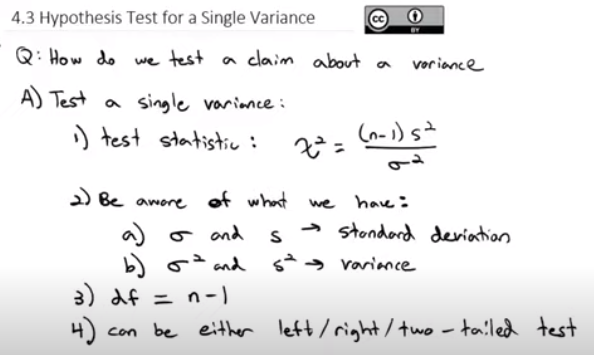 4.3 Hypothesis Test for a Single Variance
cc BY
Q: How do we test a claim about a variance
A) Test a single variance:
1) test statistic: χ² = (n-1) s² / σ²
2) Be aware of what we have:
a) σ and s → standard deviation
b) σ² and s² → variance
3) df = n-1
4) can be either left/right/two-tailed test